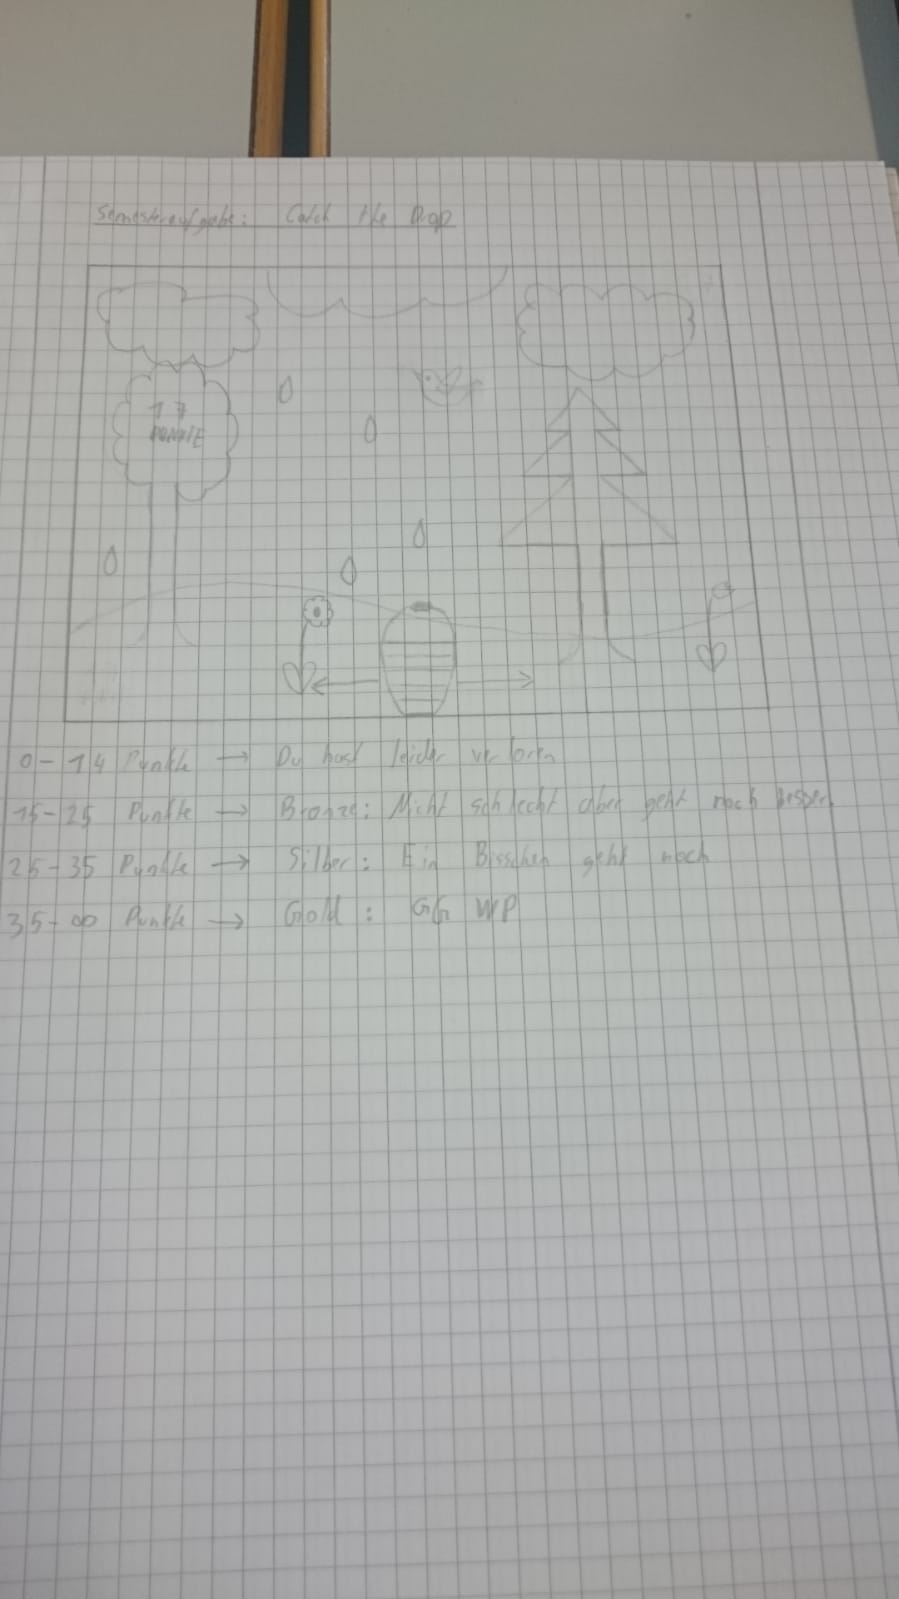 Semesteraufgabe: Catch the Drop
17
PUNKTE
0-14 Punkte → Du hast leider verloren
15-25 Punkte → Bronze: Nicht schlecht aber geht noch besser
25-35 Punkte → Silber: Ein Bisschen geht noch
35-∞ Punkte → Gold: GG WP